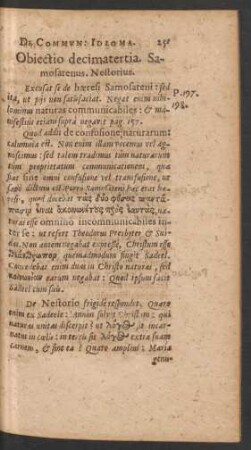 DE COMMUN: IDIOMA. 251
Obiectio decimatertia. Sa-
mosatenus. Nestorius.
Excusat se de hæresi Samosateni: sed
ita, ut pijs non satisfaciat. Negat enim
naturas communicabiles: &
manifestius etiam supra negavit pag. 157.
P. 197.
198.
Quod addit de confusione naturarum
calumnia est. Non enim illam vocamus vel ag-
noscimus: sed talem tradimus tum naturarum
tum proprietatum communicationem, quæ
hac sint omni confusione vel transfusione, ut
sæpè dictum est. Porrò Samosateni hæc erat hæ-
resis, quod dicebat τὰς δύο φύσεις
ἀκοινωνήτους πρὸς ἑαυτὰς, na-
turas esse omninò incommunicabiles in-
ter se: ut refert Theodorus Presbyter & Sui-
das. Non autem negabat expressè, Christum esse
quemadmodum fingit Sadeel.
Concedebat enim duas in Christo naturas, sed
κοινωνίαν earum negabat: Quasi ipsum facit
Sadeel cum suis.
De Nestorio frigidè respondet. Quæro
enim ex Sadeele: Annon solvat Christum: qui
naturas unitas discerpit? ut λόγος, is incar-
natus in cœlis: in terris sit λόγος extra suam
carnem, & sine ea? Quæro amplius: Maria
genu-